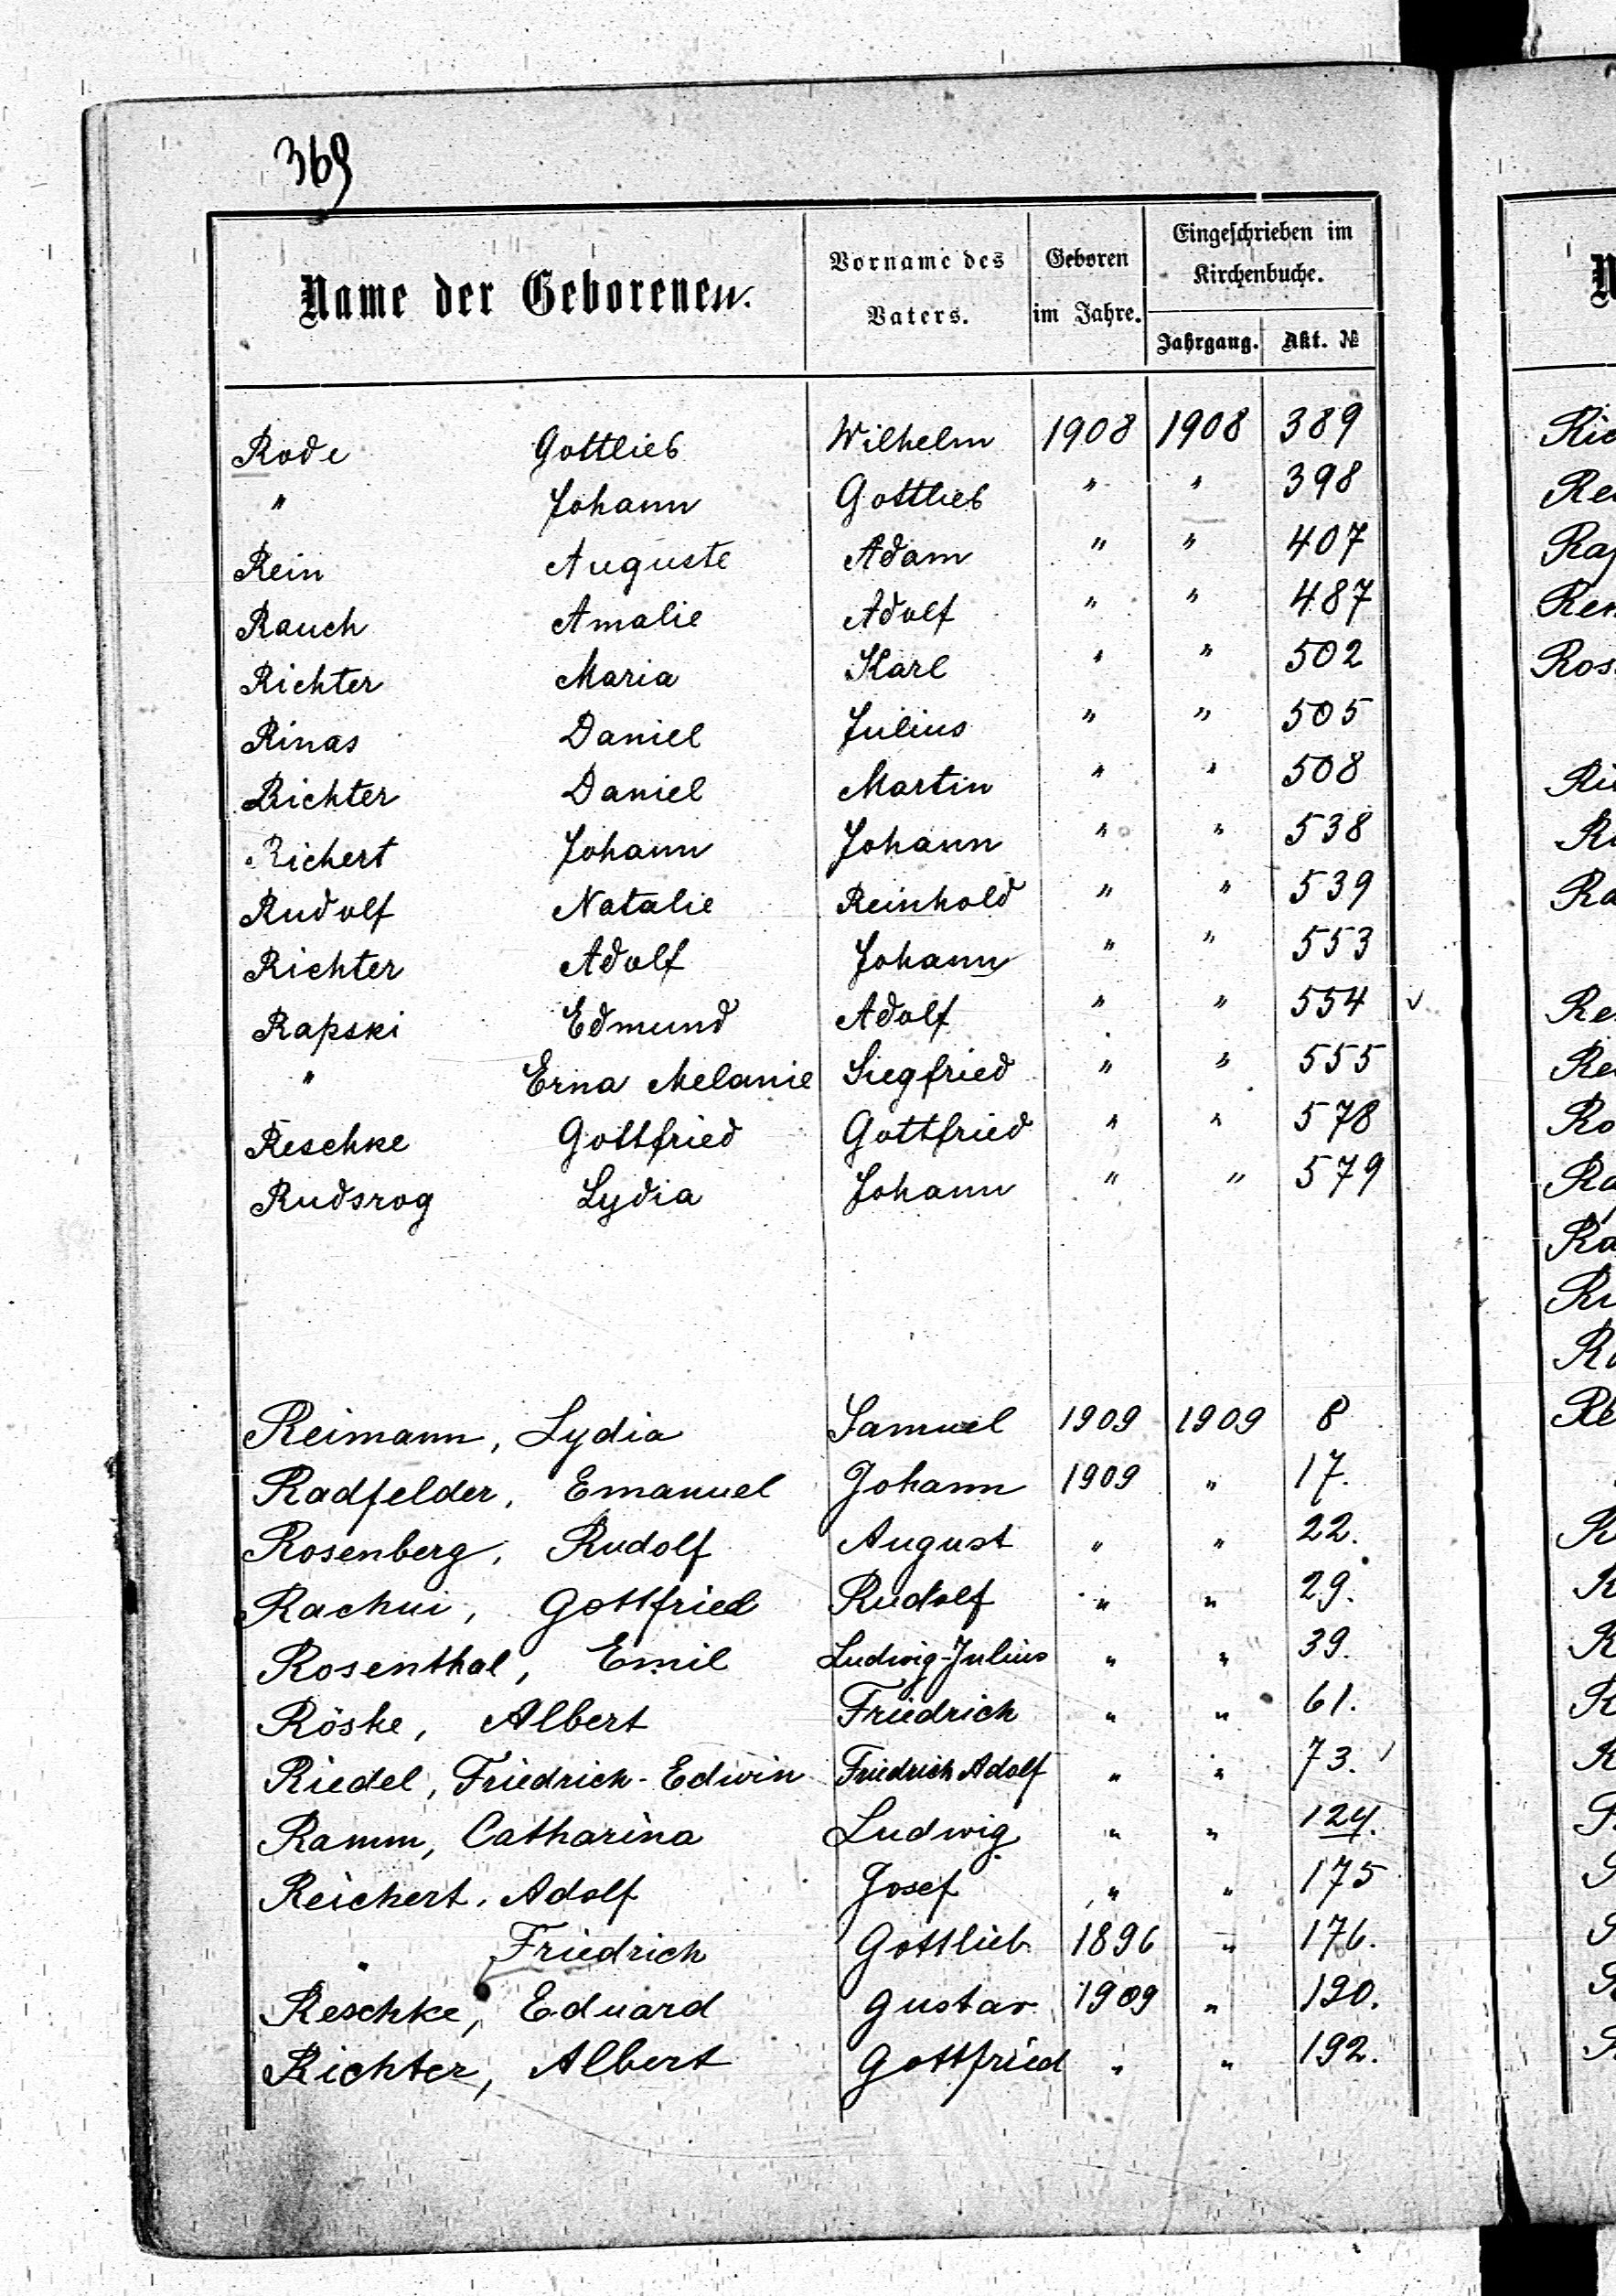 369
Name der Geborenen.
Vorname des Vaters.
Geboren im Jahre.
Eingeschrieben im Kirchenbuche.
Jahrgang. Akt. №
Rode Gottlieb Wilhelm 1908 1908 389
" Johann Gottlieb " " 398
Rein Auguste Adam " " 407
Rauch Amalie Adolf " " 487
Richter Maria Karl " " 502
Rinas Daniel Julius " " 505
Richter Daniel Martin " " 508
Richert Johann Johann " " 538
Rudolf Natalie Reinhold " " 539
Richter Adolf Johann " " 553
Rapski Edmund Adolf " " 554 ✓
" Erna Melanie Siegfried " " 555
Reschke Gottfried Gottfried " " 578
Rudsrog Lydia Johann " " 579
Reimann, Lydia Samuel 1909 1909 8
Radfelder, Emanuel Johann 1909 " 17.
Rosenberg, Rudolf August " " 22.
Rachui, Gottfried Rudolf " " 29.
Rosenthal, Emil Ludwig-Julius " " 39.
Röske, Albert Friedrich " " 61.
Riedel, Friedrich-Edwin Friedrich Adolf " " 73. ✓
Ramm, Catharina Ludwig " " 124.
Reichert, Adolf Josef " " 175
" Friedrich Gottlieb 1896 " 176.
Reschke, Eduard Gustav 1909 " 190.
Richter, Albert Gottfried " " 192.